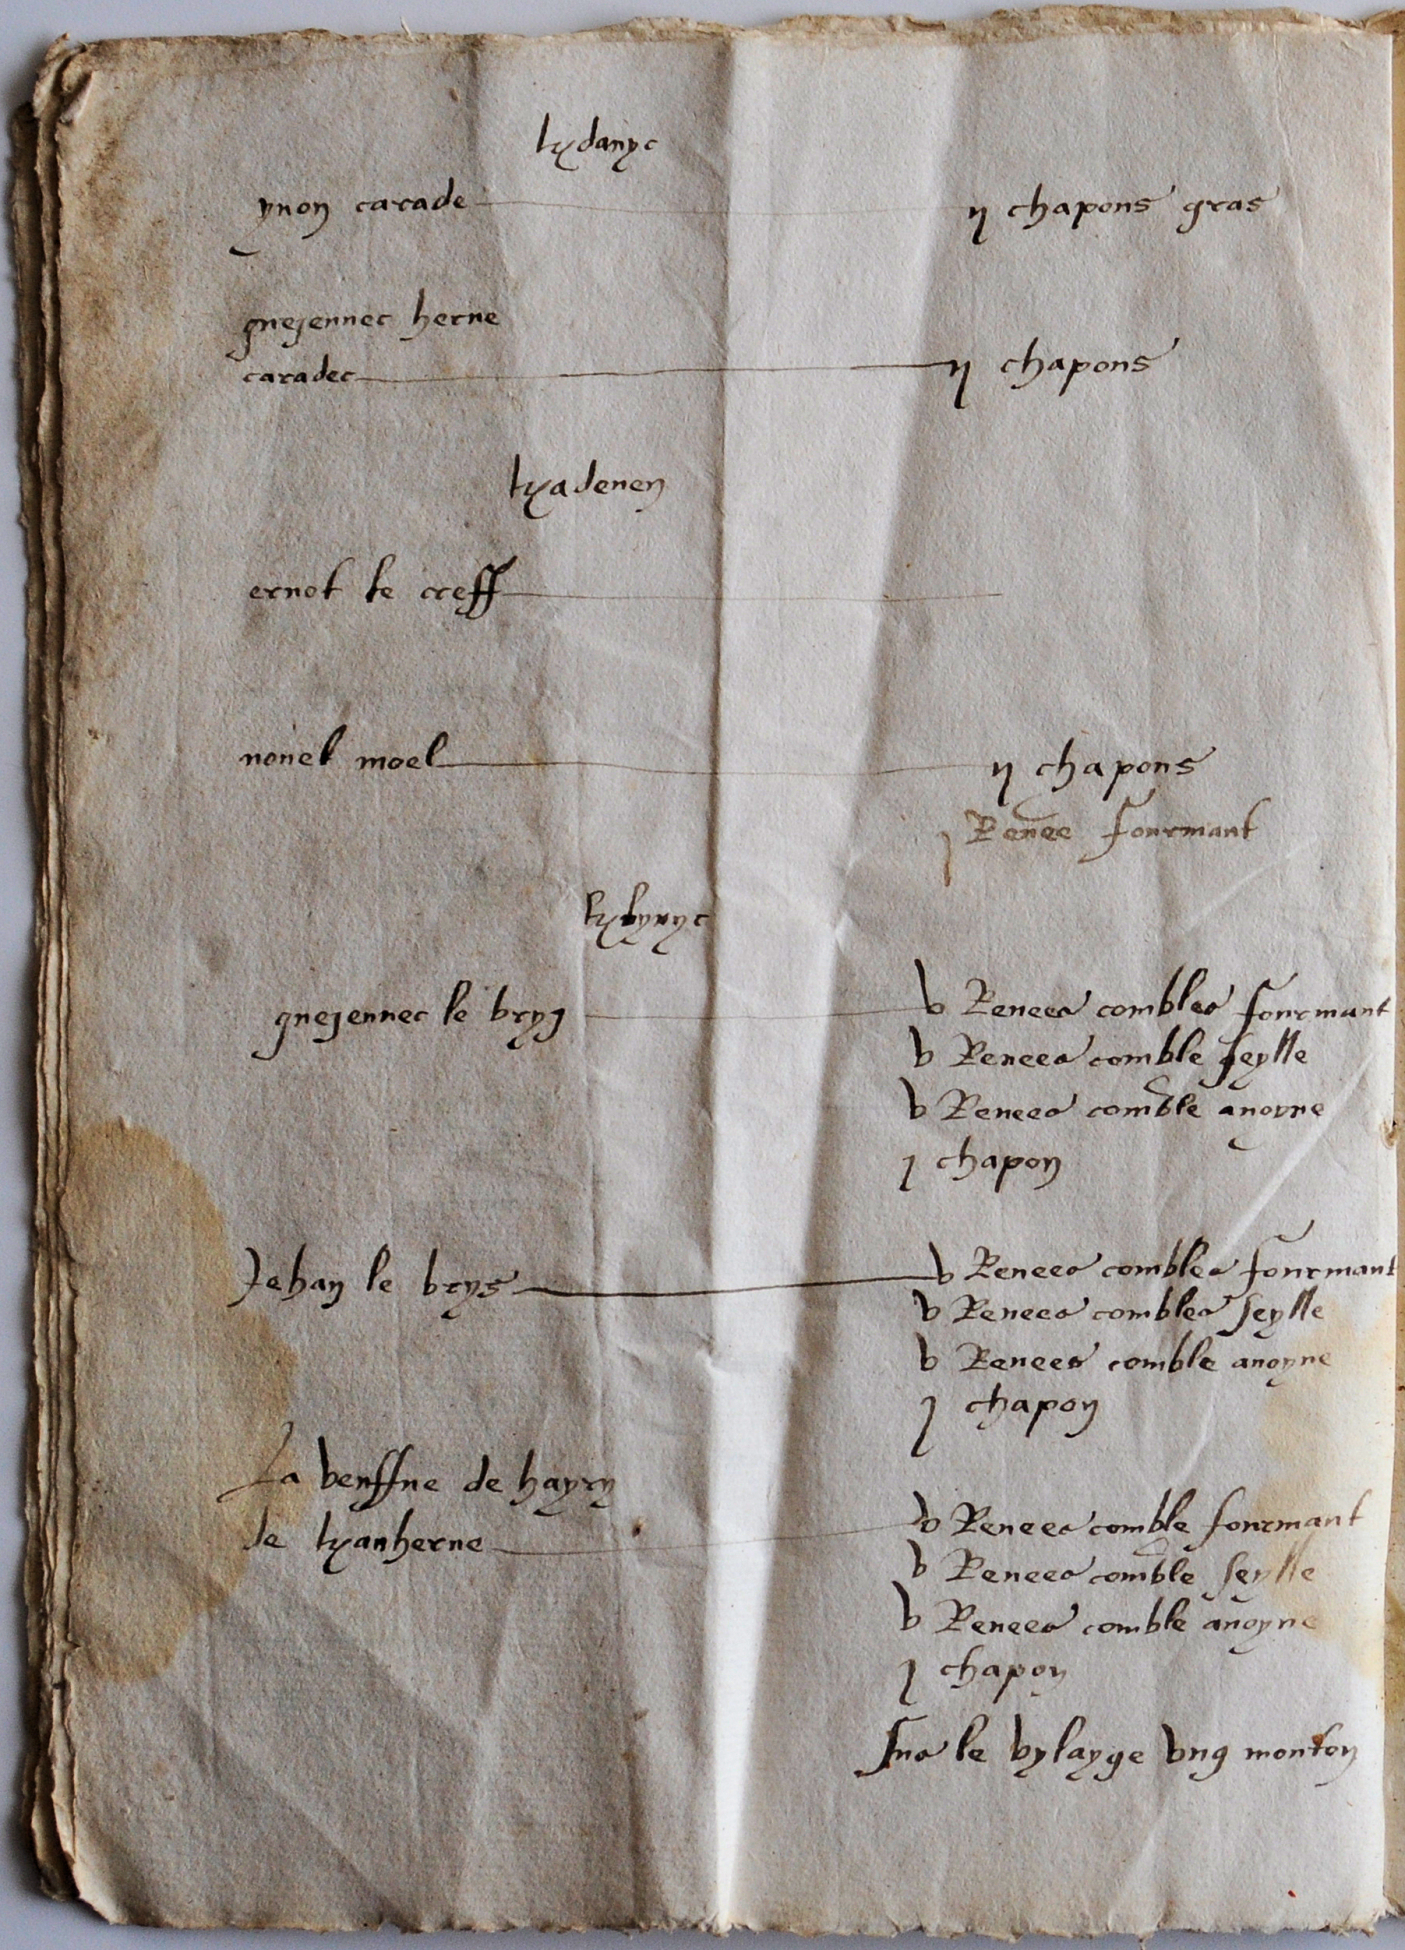 kdanyc
ynon carade ij chapons gras
guejennec herue
caradec ij chapons
kadenen
ernot le creff
nouel moel ij chapons
j Renee fourmant
kbyryc
guejennec le bryz v Renees combles fourmant
v Renees comble seylle
v Renees comble auoyne
j chapon
Jehan le brys v Renees combles fourmant
v Renees combles seylle
v Renees comble auoyne
j chapon
La veuffue de hayry
de kanherue v Renees comble fourmant
v Renees comble seylle
v Renees comble auoyne
j chapon
sus le vylayge vng mouton